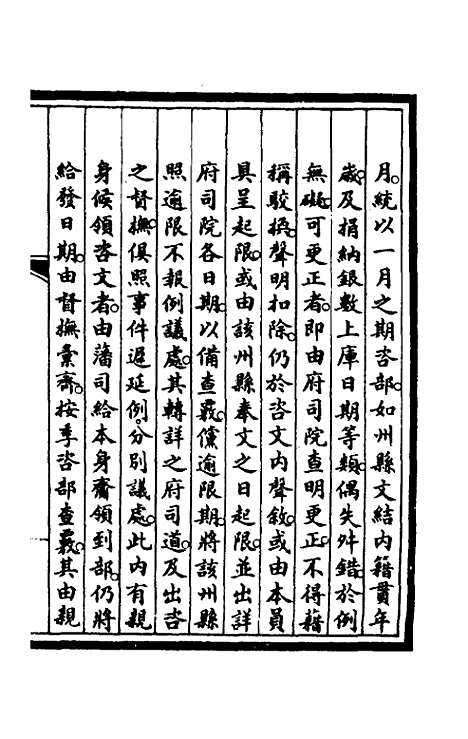 月。統以一月之期咨部。如州縣文結內籍貫年
歲。及捐納銀數上庫日期等類。偶失舛錯。於例
無礙。可更正者。即由府司院查明更正。不得藉
稱駁換。聲明扣除。仍於咨文內聲敘。或由本員
具呈起限。或由該州縣奉文之日起限。並出詳
府司院各日期。以備查覈。儻逾限期。將該州縣
照逾限不報例議處。其轉詳之府司道。及出咨
之督撫。俱照事件遲延例。分別議處。此內有親
身候領咨文者。由藩司給本身齎領到部。仍將
給發日期。由督撫彙齊。按季咨部查覈。其由親